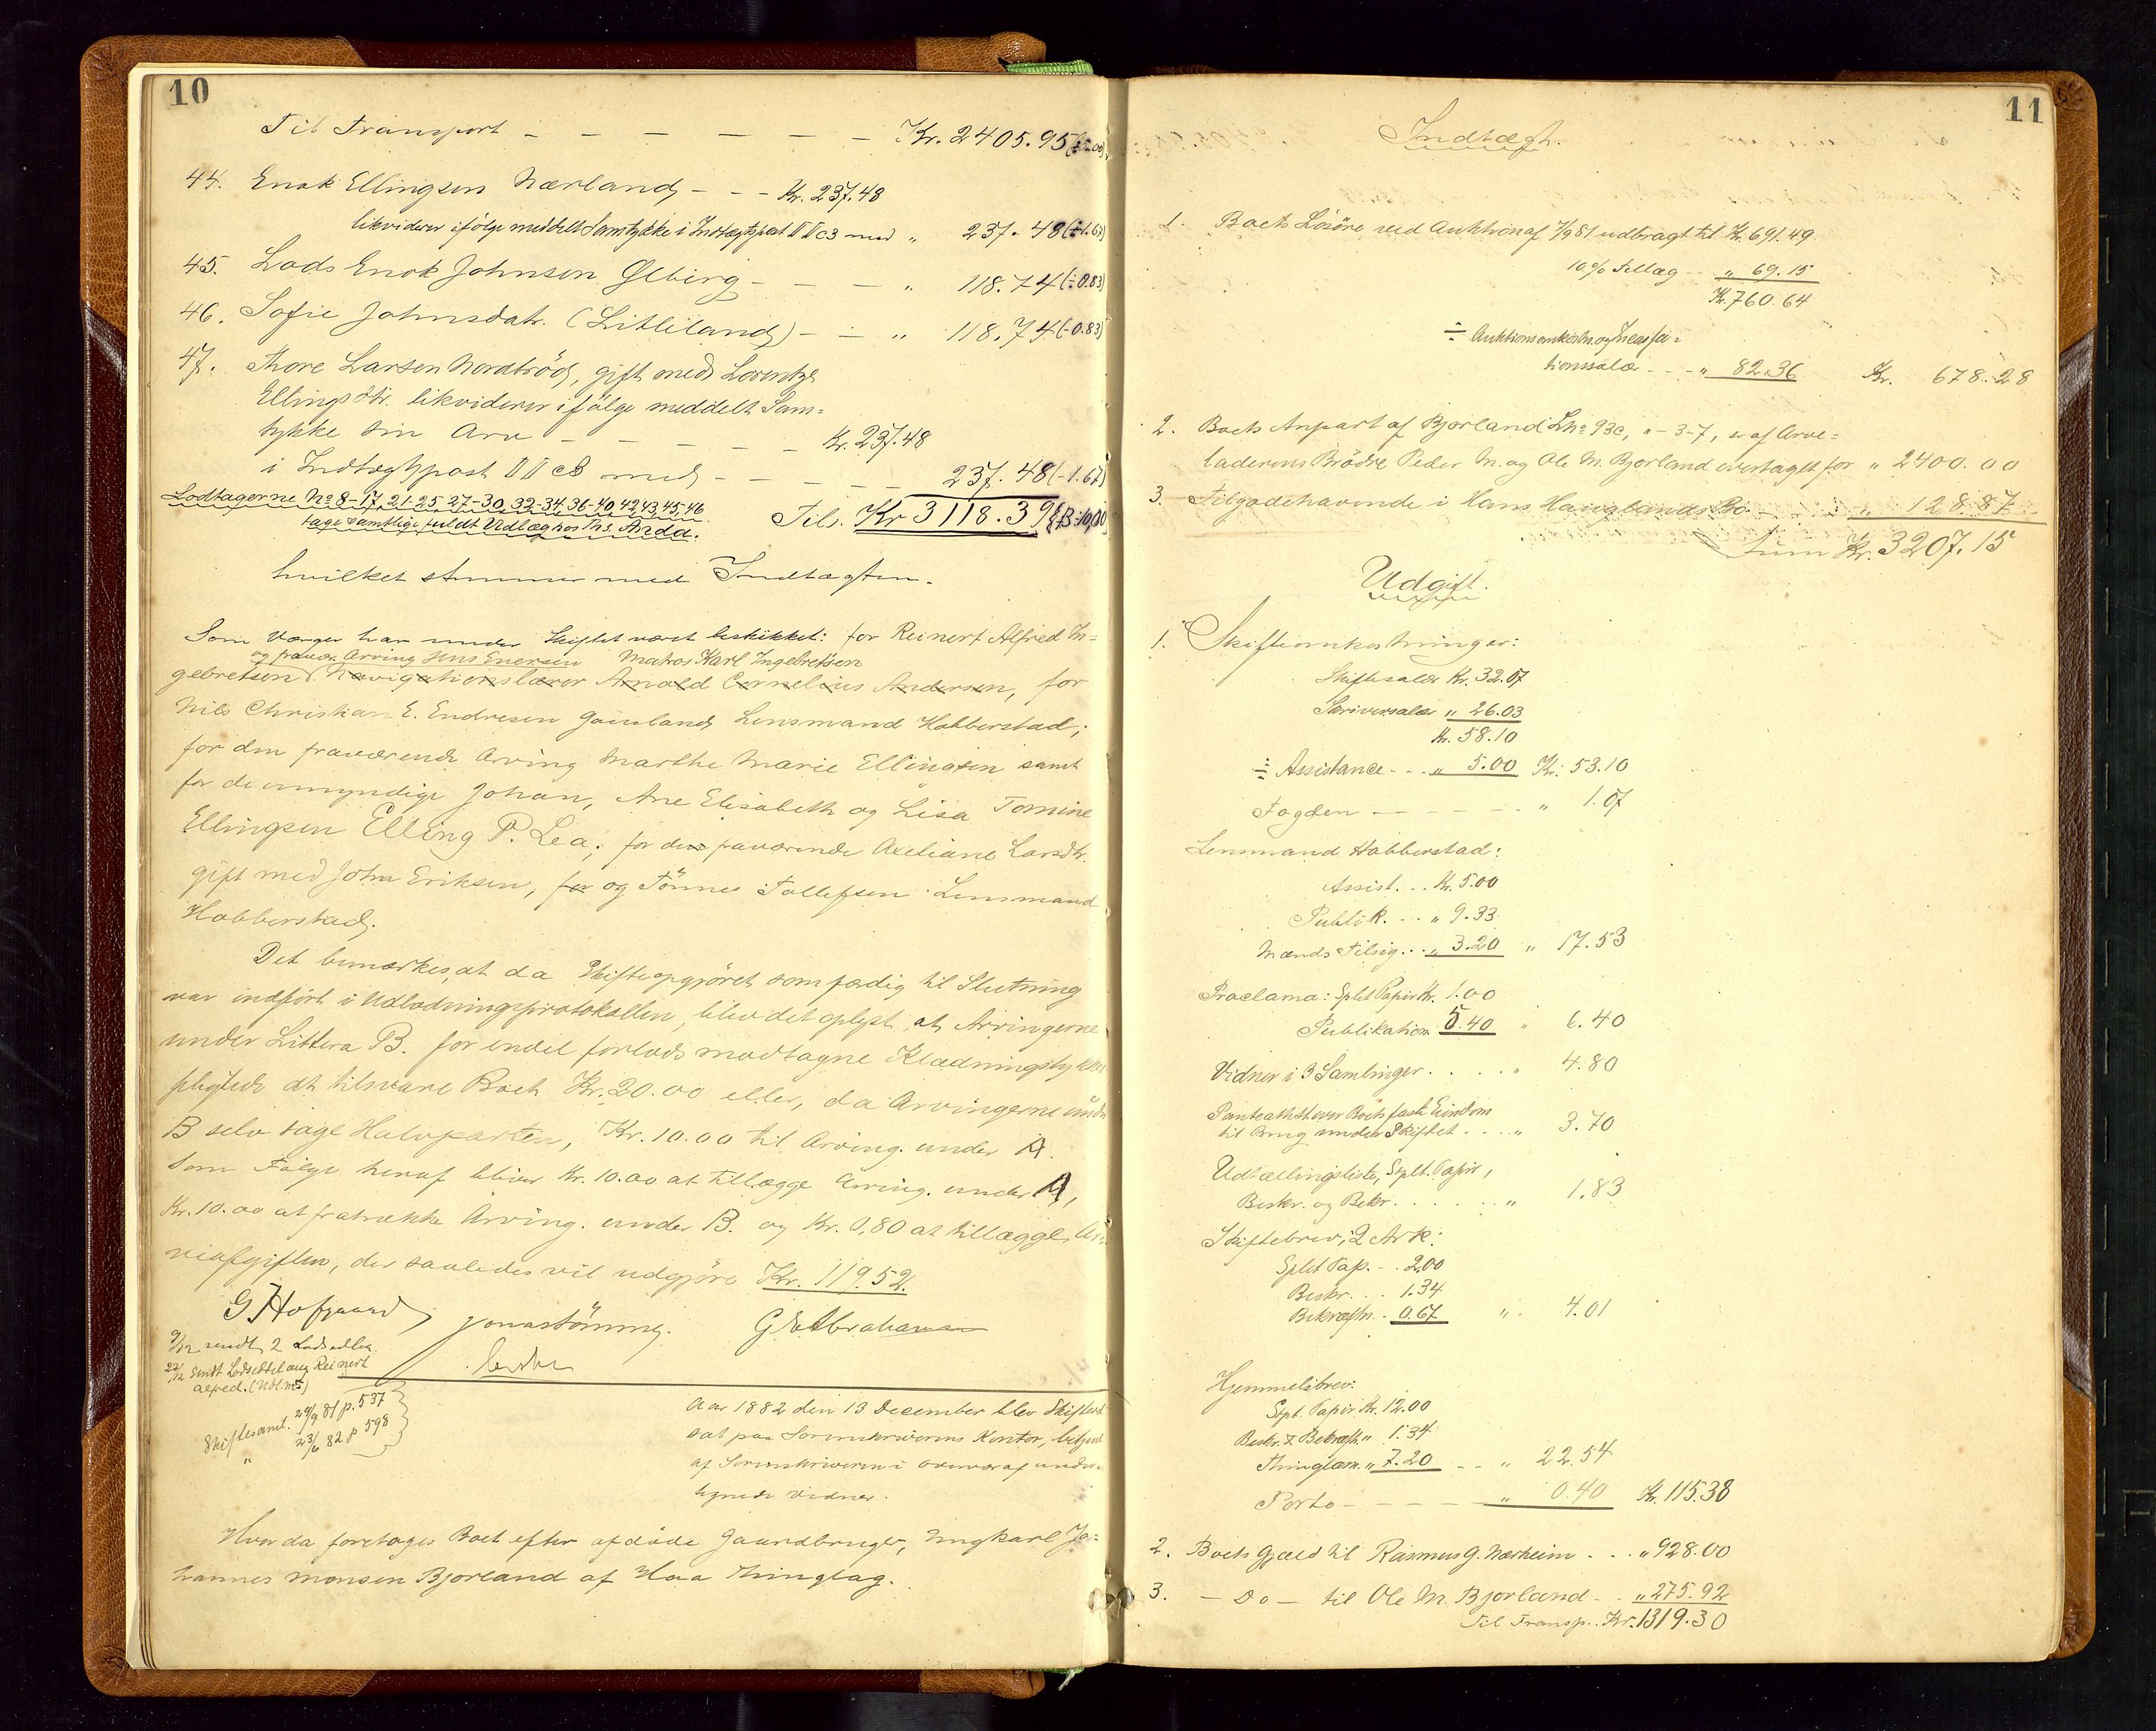 10
Til Transport – – – – – – Kr. 2405.95
44. Enok Ellingsen Nærland – – – Kr. 237.48
likviderer ifølge meddelt Samtykke i Indtægtspost med " 237.48 (÷1.67)
45. Lods Enok Johnsen Ølberg – – – " 118.74 (÷0.83)
46. Sofie Johnsdatr. (Litleland) – – " 118.74 (÷0.83)
47. Thore Larsen Nordbröd, gift med Lorentze
Ellingsdtr. likviderer ifölge meddelt Sam=
tykke sin Arv – – – – Kr. 237.48
i Indtægtspost med – – – – – 237.48 (÷1.67)
Lodtagerne No 8–17, 21–25, 27–30, 32–34, 36–40, 42, 43, 45, 46
tage samtlige fuldt Udlæg hos Ths. Arda.
Tils. Kr 3118.39
hvilket stemmer med Indtægten.
Som Værger har under Skiftet været beskikket: for Reinert Alfred In=
og fravær. Arving Jens Enersen Matros Karl Ingebretsen
gebretsen Navigationslærer Arnold Cornelius Andersen, for
Nils Christian E. Endresen Gausland, Lensmand Hobberstad;
for den fraværende Arving Marthe Marie Ellingsen samt
for de umyndige Johan, Ane Elisabeth og Lisa Tomine
Ellingsen Elling P. Lea; for den fraværende Axeliane Larsdtr.
gift med John Eriksen, for og Tönnes Tollefsen Lensmand
Hobberstad.
Det bemærkes, at da Skifteopgjöret som færdig til Slutning
var indfört i Udlodningsprotokollen, blev det oplyst, at Arvingerne
under Littera B. for endel forlods modtagne Klædningsstykker
pligtede at tilsvare Boet Kr. 20.00 eller, da Arvingerne under
B selv tage Halvparten, Kr. 10.00 til Arving. under A.
Som Følge heraf bliver Kr. 10.00 at tillægge Arving. under A,
Kr. 10.00 at fratrække Arving. under B. og Kr. 0,80 at tillægges Ar=
veafgiften, der saaledes vil udgjøre Kr. 119.52.
G Hofgaard Jonas Tönning. G E Abrahamsen
9/12 sendt 2 Lodsedler.
22/12 Sendt Lodseddel ang Reinert
Alfred. (Udl. No 5)
Skiftesaml. 24/9 81 p. 537
" 23/6 82 p 598
Aar 1882 den 13 December blev Skifteret
sat paa Sorenskriverens Kontor, betjent
af Sorenskriveren i Overvær af under=
tegnede Vidner.
Hvor da foretoges Boet efter afdøde Gaardbruger, Ungkarl Jo=
hannes Monsen Bjorland af Haa Thinglag.
11
Indtægt.
1. Boets Lösöre ved Auktion af 7/9 81 udbragt til Kr. 691.49
10% Tillæg – – " 69.15
Kr. 760.64
÷ Auktionsomkostn. og Incassa=
tionssalær – – – " 82.36 Kr. 678.28
2. Boets Anpart af Bjorland Lno 93c, " – 3–7, er af Arve=
laderens Brödre Peder M. og Ole M. Bjorland overtaget for " 2400.00
3. Tilgodehavende i Hans Hauglands Bo. – " 128.87
Sum Kr. 3207.15
Udgift.
1. Skifteomkostninger:
Skiftesalær Kr. 32.07
Skriversalær " 26.03
Kr. 58.10
÷ Assistance – – – " 5.00 Kr. 53.10
Fogden – – – – – – " 1.07
Lensmand Hobberstad:
Assist. . . Kr. 5.00
Publik. – – " 9.33
Mænds Tilsig. . . " 3.20 " 17.53
Proclama: Splt Papir Kr. 1.00
Publikation 5.40 " 6.40
Vidner i 3 Samlinger . . . . . " 4.80
Panteattest over Boets faste Eiendom
til Brug under Skiftet . . . . " 3.70
Udtællingsliste, Splt. Papir,
Beskr. og Bekr. . . . . . . " 1.83
Skiftebrev, 2 Ark:
Splt Pap. – . 2.00
Beskr. . . . 1.34
Bekræftn. . 0.67 " 4.01
Hjemmelsbrev:
Stpt. Papir Kr. 12.00
Beskr. & Bekræft. " 1.34
Thinglæsn. " 7.20 – – " 22.54
Porto – – – – – " 0.40 Kr. 115.38
2. Boets Gjæld til Rasmus G. Nærheim . . . " 928.00
3. – Do – til Ole M. Bjorland – . " 275.92
Til Transp. . Kr. 1319.30